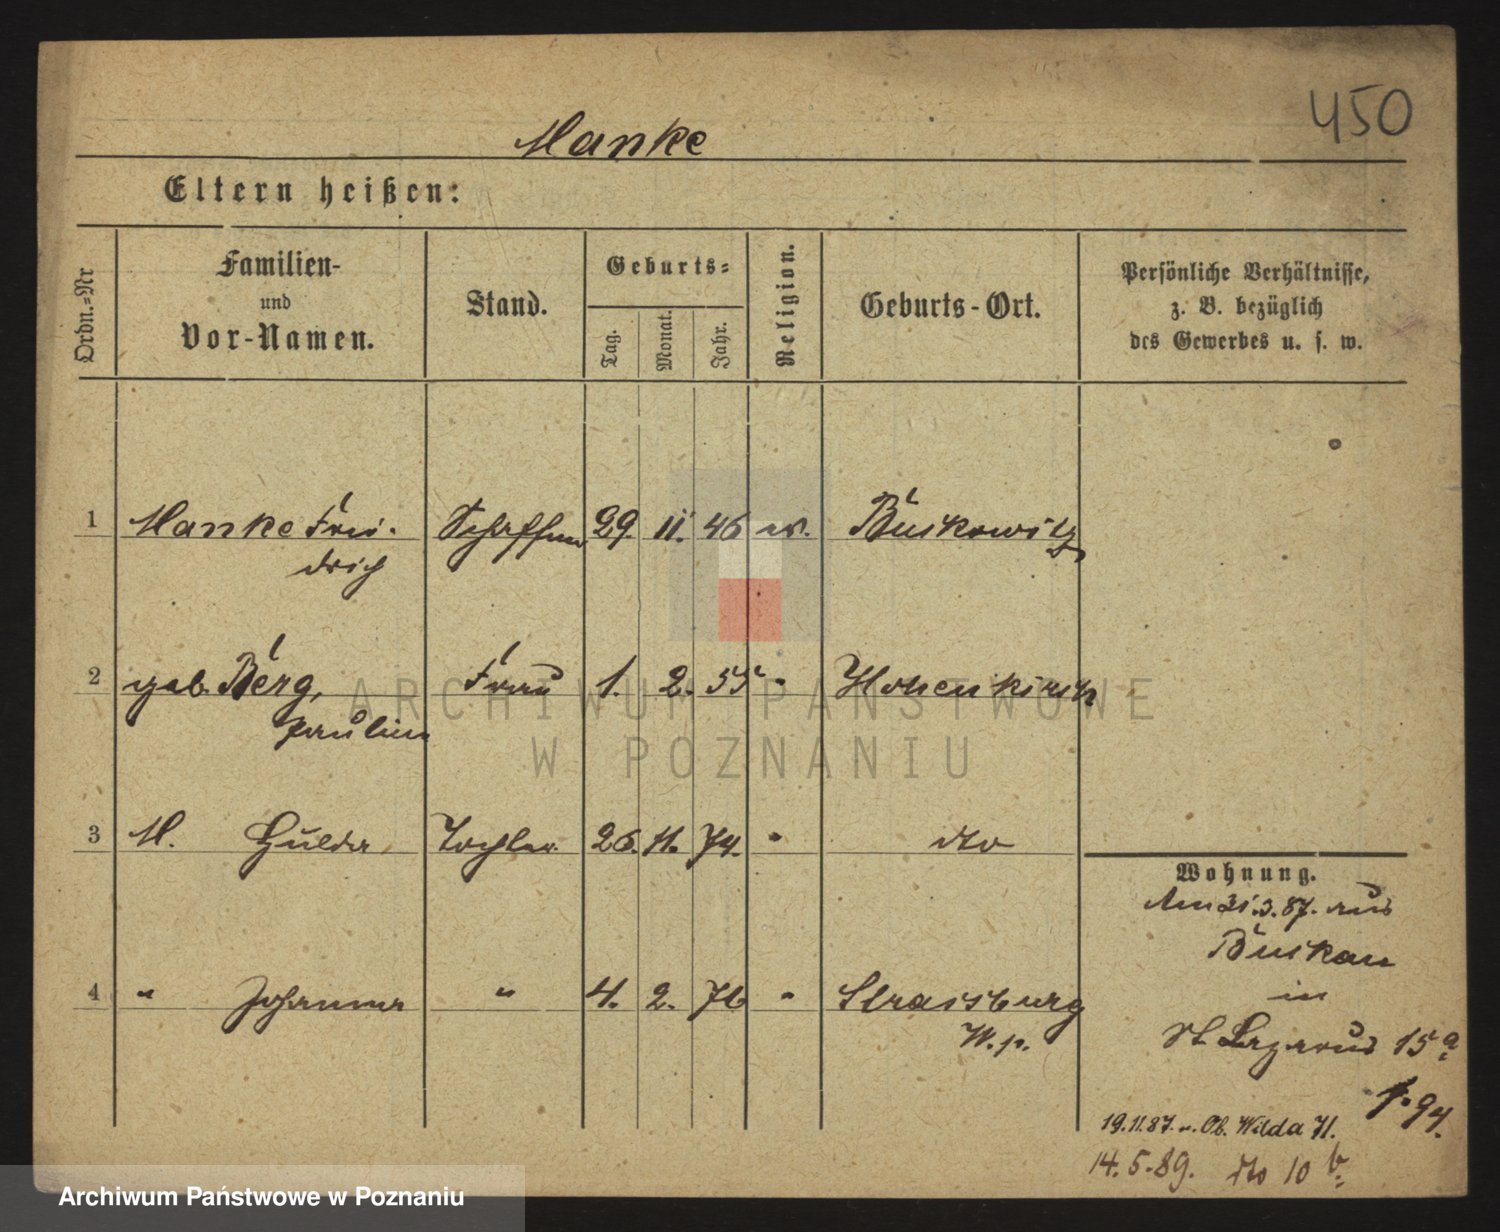 450
Manke
Eltern heißen:
Ordn.=Nr
Familien-
und
Vor-Namen.
Stand.
Geburts=
Tag.
Monat.
Jahr.
Religion.
Geburts-Ort.
Persönliche Verhältnisse,
z. B. bezüglich
des Gewerbes u. s. w.
1 Manke Frie- Schaffner 29. 11. 46 ev. Buskowitz
drich
2 geb. Berg, Frau 1. 2. 55 " Hohenkirch
Pauline
3 M. Hulda Tochter 26. 11. 74. " dto
4 " Johanna " 4. 2. 76 " Strassburg
W.p.
Wohnung.
Am 31.3.87. aus
in
St Lazarus 15a
19.11.87. n. Ob. Wilda 71.
14.5.89. dto 10 b.
ARCHIWUM PAŃSTWOWE
W POZNANIU
Archiwum Państwowe w Poznaniu